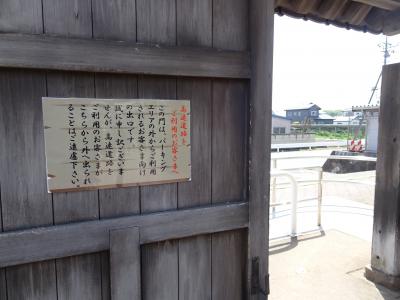 高速道路を
ご利用のお客さまへ
この門は、パーキング
エリアの外からご利用
されるお客さま向け
の出口です。
誠に申し訳ございま
せんが、高速道路を
ご利用のお客さまが
こちらから外へ出られ
ることはご遠慮下さい。